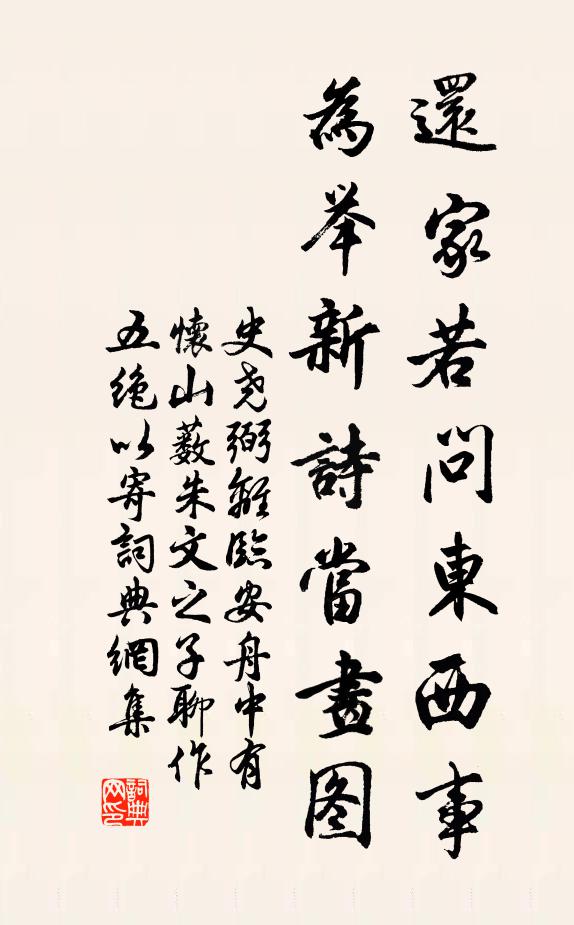 還家若問東西事
為举新詩當畫图
史尧弼離臨安舟中有
懷山薮朱文之子聊作
五绝以寄詞典網集
詞典
网印